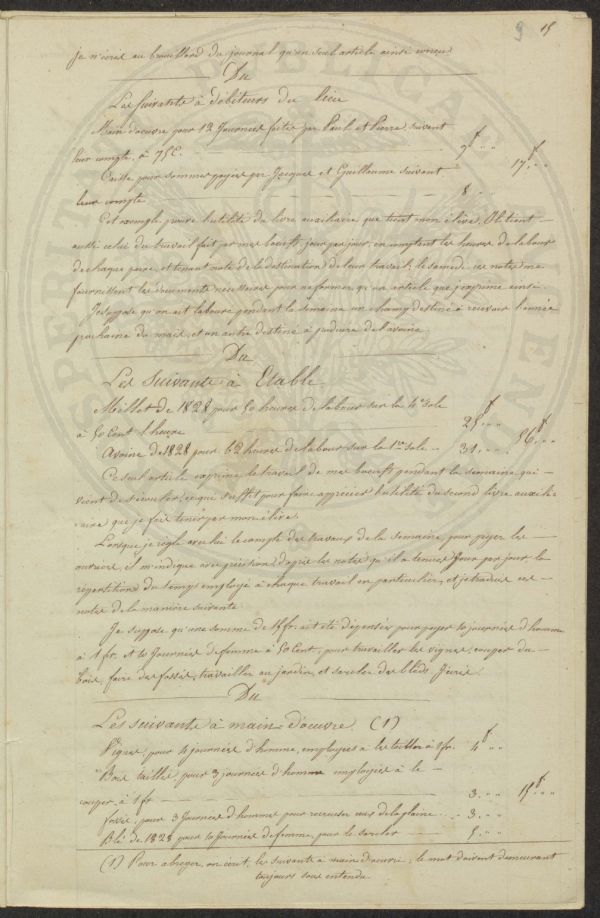 9 15
je n'écris au brouillard du journal qu'un seul article ainsi conçu
Du
Les Suivants à Débiteurs du lieu
Main d'œuvre pour 12 Journées faites par Paul et Pierre suivant
leur compte à 75 C. 9f „ „
Caisse pour sommes payées par Jacques et Guillaume suivant 17f „ „
leur compte 8 „ „
Cet exemple prouve l'utilité du livre auxiliaire que tient mon élève. Il tient
aussi celui du travail fait par mes bœufs, jour par jour, en comptant les heures de labour
de chaque paire, et tenant note de la destination de leur travail, le samedi ces notes me
fournissent les documents nécessaires pour ne former qu'un article que j'exprime ainsi.
Je suppose qu'on ait labouré pendant la semaine un champ destiné à recevoir l'année
prochaine du maïs, et un autre destiné à produire de l'avoine.
Du
Les Suivants à Etable
Millet de 1828 pour 50 heures de labour sur la 4e sole
à 50 Cent l'heure 25f „ „
Avoine de 1828 pour 62 heures de labour sur la 1ere sole 31 „ „ 56f „ „
Ce seul article exprime le travail de mes bœufs pendant la semaine qui
vient de s'écouler, ce qui suffit pour faire apprécier l'utilité du second livre auxili-
aire que je fais tenir par mon élève.
Lorsque je règle avec lui le compte des travaux de la semaine pour payer les
ouvriers, il m'indique avec précision d'après les notes qu'il a tenues jour par jour, la
répartition du temps employé à chaque travail en particulier, et je traduis ces
notes de la manière suivante
Je suppose qu'une somme de 15 fr. ait été dépensée pour payer 10 journées d'homme
à 1 fr. et 10 Journées de femme à 50 Cent, pour travailler les vignes, couper du
bois, faire des fossés, travailler au jardin, et sarcler des bleds J'écris.
Du
Les suivants à main-d'œuvre (1)
Vignes, pour 4 journées d'homme, employées à les tailler à 1 fr. 4f „ „
Bois taillis pour 3 journées d'homme employées à le
couper, à 1 fr 3 „ „ 15f „ „
Fossés, pour 3 Journées d'hommes pour recreuser ceux de la plaine 3 „ „
Blé de 1828 pour 10 Journées de femme, pour le sarcler 5 „ „
(1) Pour abréger, on écrit, les suivants à main d'œuvre, le mot doivent demeurant
toujours sous entendu